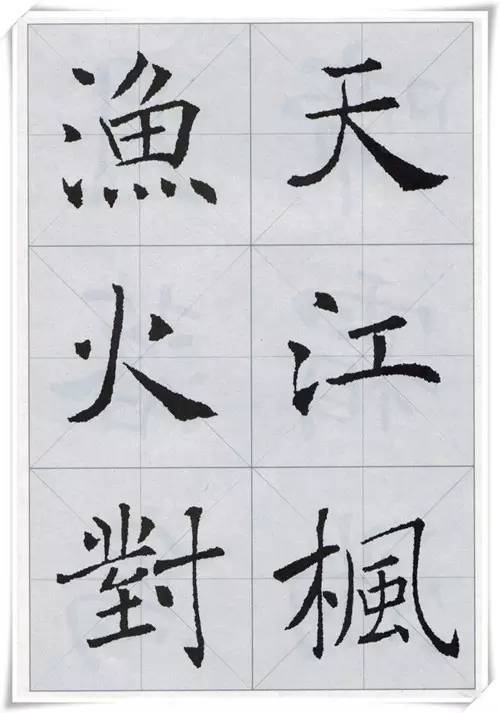 天江楓
漁火對